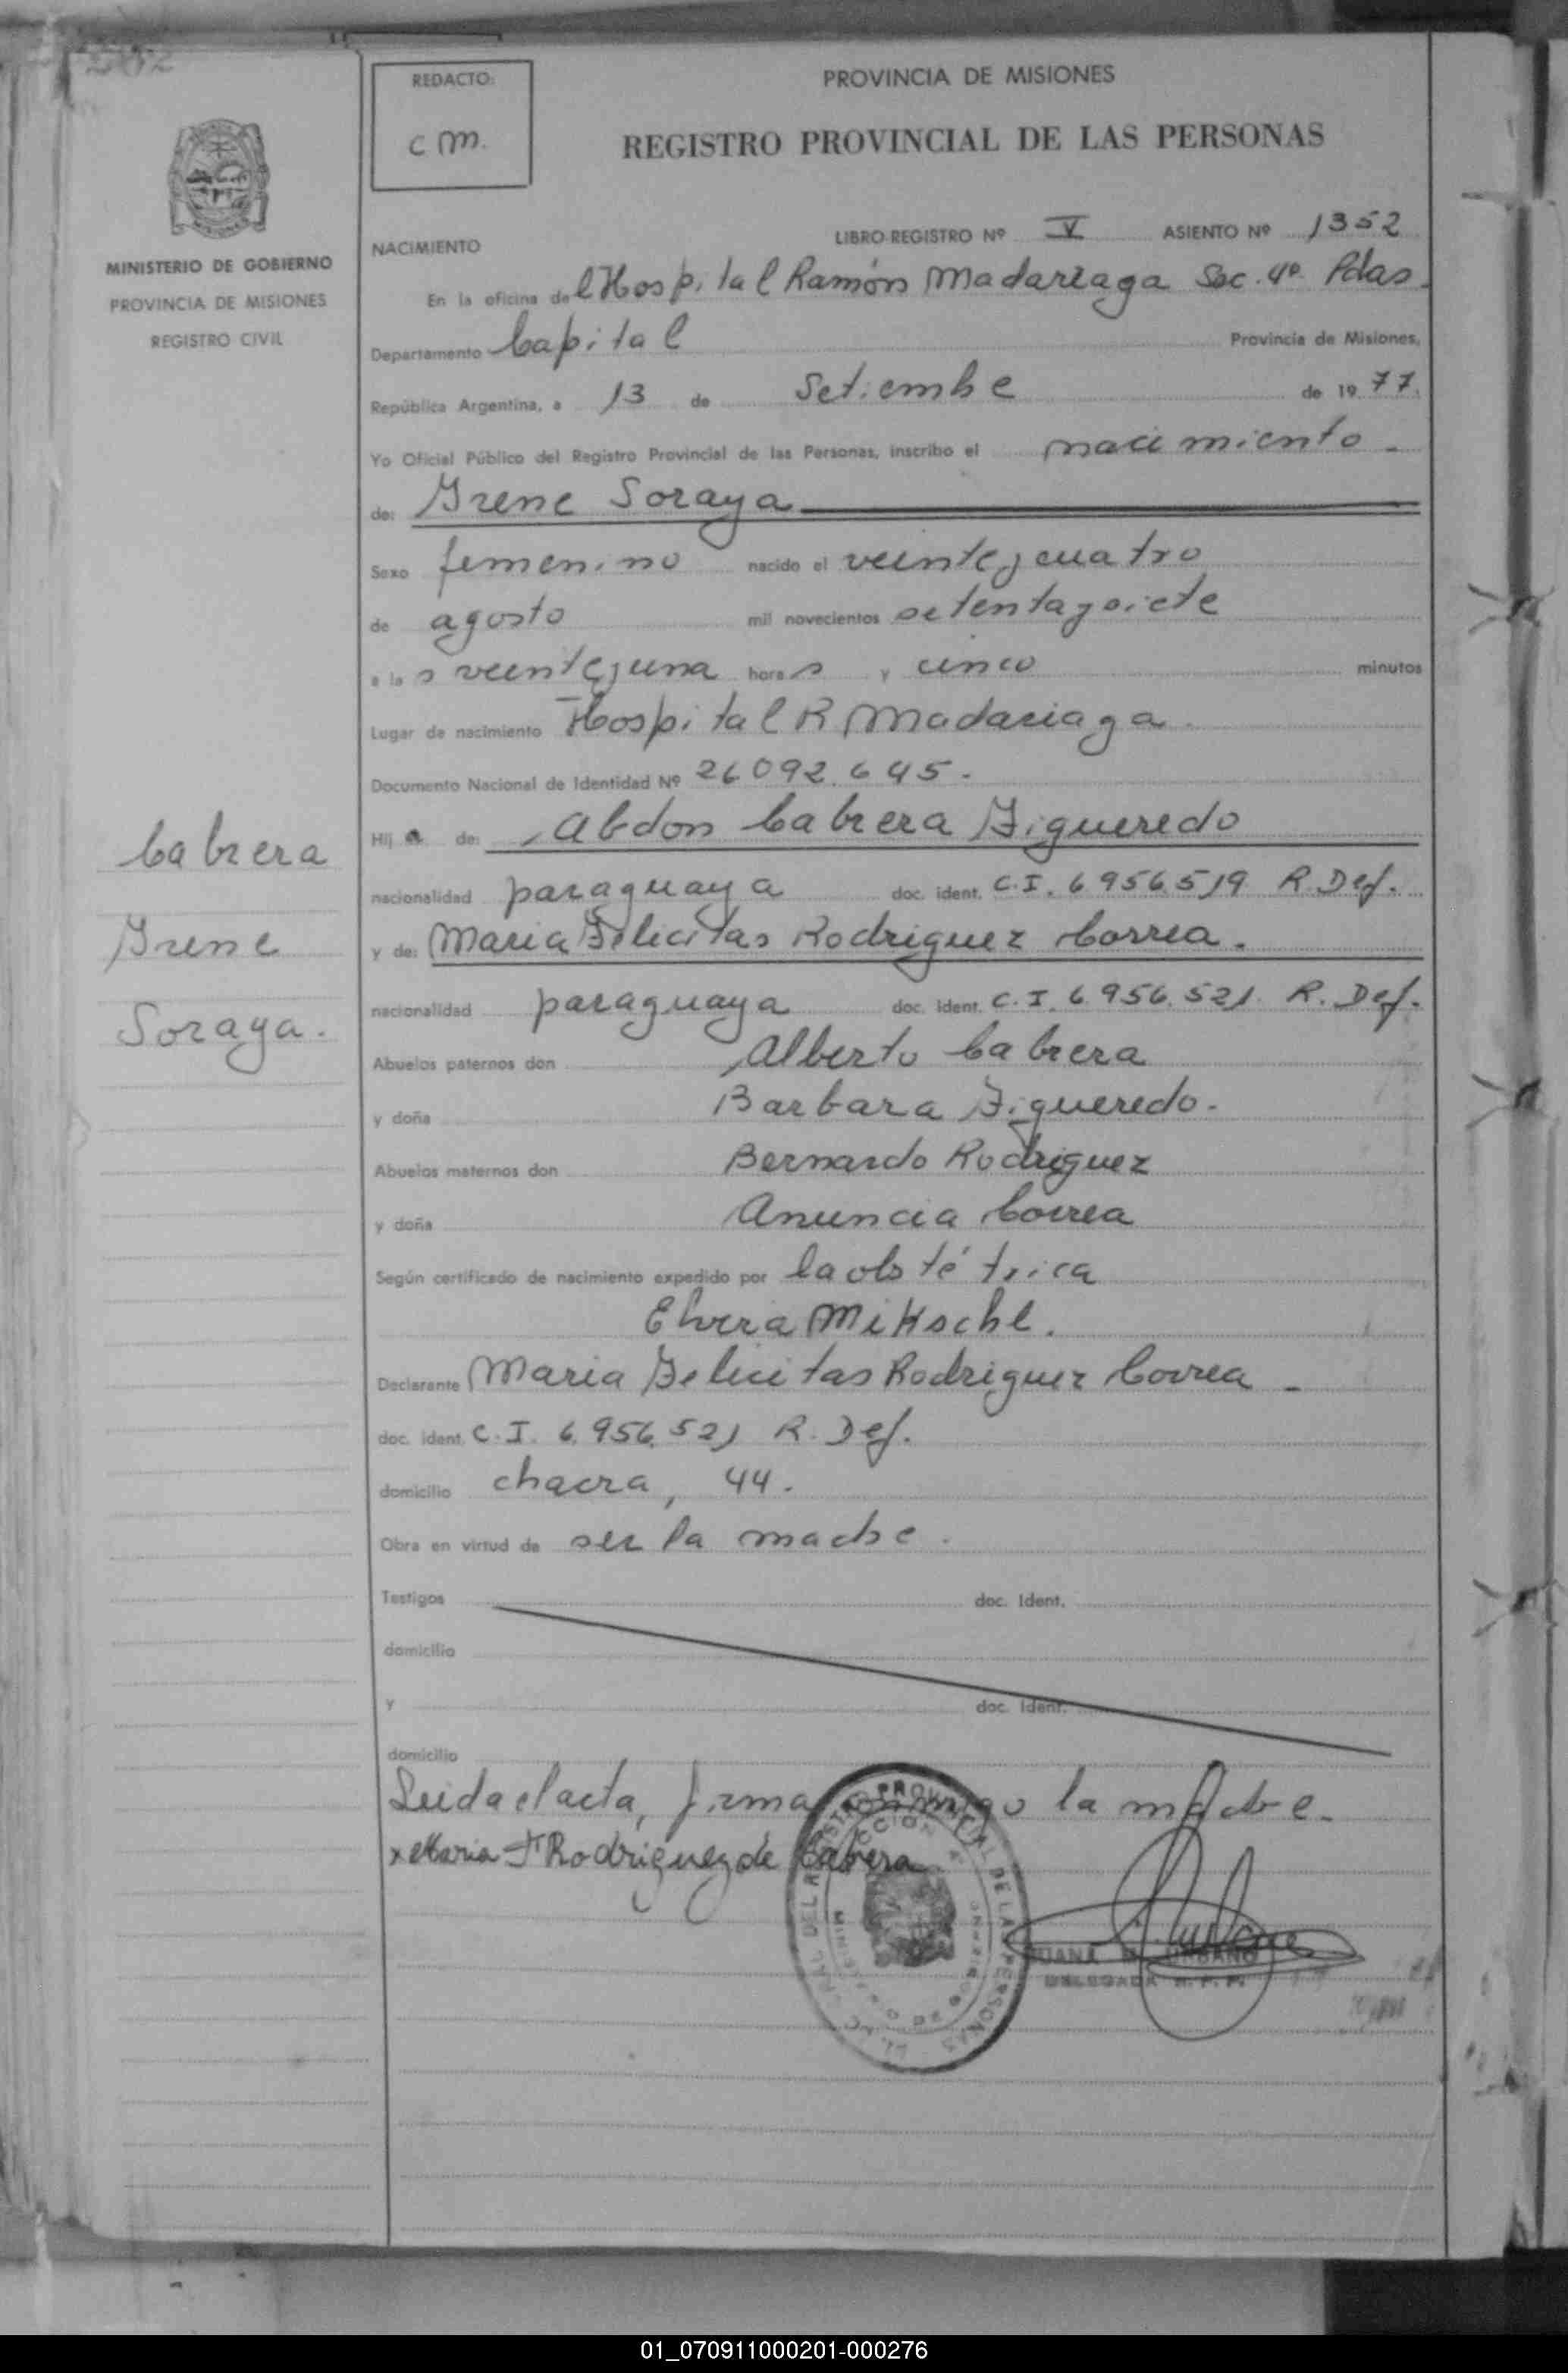 REDACTO:
C M.
PROVINCIA DE MISIONES
REGISTRO PROVINCIAL DE LAS PERSONAS
MINISTERIO DE GOBIERNO
PROVINCIA DE MISIONES
REGISTRO CIVIL
NACIMIENTO
LIBRO-REGISTRO Nº V ASIENTO Nº 1352
En la oficina del Hospital Ramón Madariaga Sec. 4º Pdas.
Departamento Capital Provincia de Misiones,
República Argentina, a 13 de Setiembre de 1977.
Yo Oficial Público del Registro Provincial de las Personas, inscribo el nacimiento
de: Irene Soraya
Sexo femenino nacido el veinteycuatro
de agosto mil novecientos setentaysiete
a las veinteyuna horas y cinco minutos
Lugar de nacimiento Hospital R Madariaga.
Documento Nacional de Identidad Nº 26092.645.
Hija de: Abdon Cabrera Figueredo
Cabrera
nacionalidad paraguaya doc. ident. C.I. 6956.519 R. Def.
Irene
y de: Maria Felicitas Rodriguez Correa.
Soraya.
nacionalidad paraguaya doc. ident. C.I. 6.956.521. R. Def.
Abuelos paternos don Alberto Cabrera
y doña Barbara Figueredo.
Abuelos maternos don Bernardo Rodriguez
y doña Anuncia Correa
Según certificado de nacimiento expedido por la obstétrica
Elvira Mikschl.
Declarante Maria Felicitas Rodriguez Correa
doc. ident. C.I. 6.956.521 R. Def.
domicilio chacra, 44.
Obra en virtud de ser la madre.
Testigos doc. Ident.
domicilio
y doc. Ident.
domicilio
Leida el acta, firma conmigo la madre.
x Maria F Rodriguez de Cabrera
DEL REGISTRO PROVINCIAL DE LAS PERSONAS
URBANO
DELEGADA R. P. P.
01_070911000201-000276